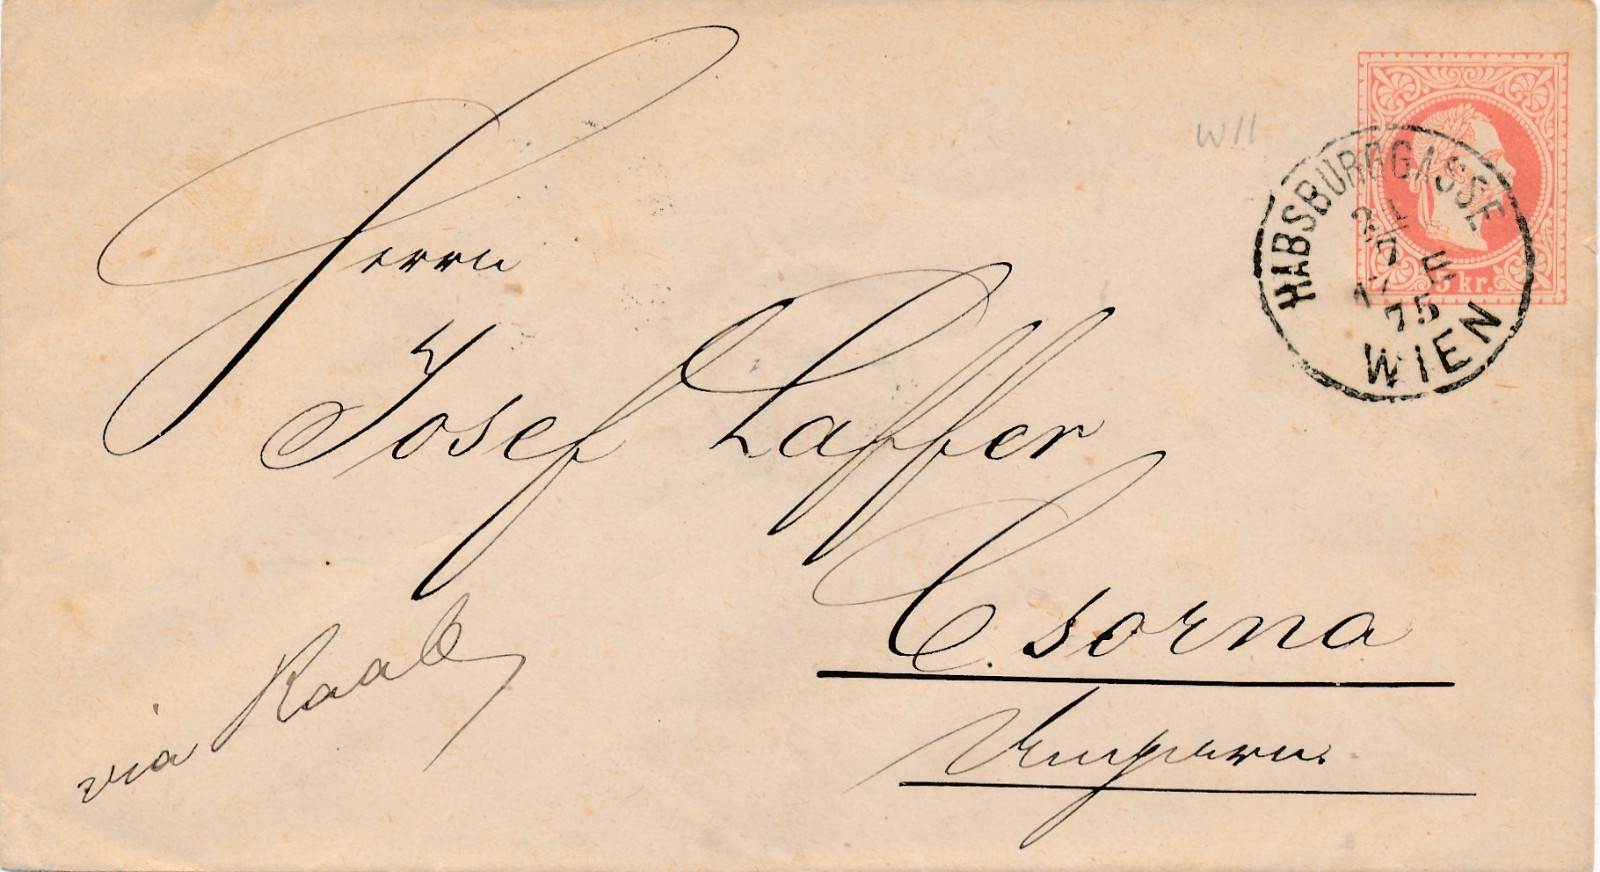 W11
HABSBURGGASSE
75
WIEN
5 kr.
Herrn
Josef Laffer
Csorna
Ungarn
via Raab